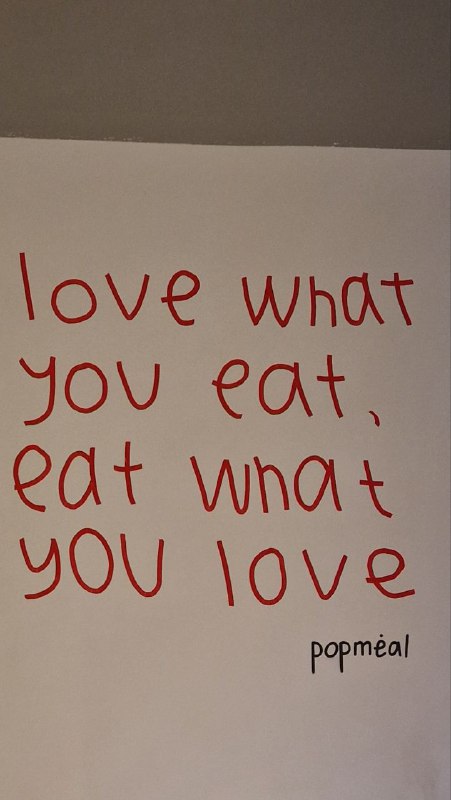 love what
you eat,
eat what
you love
popmėal